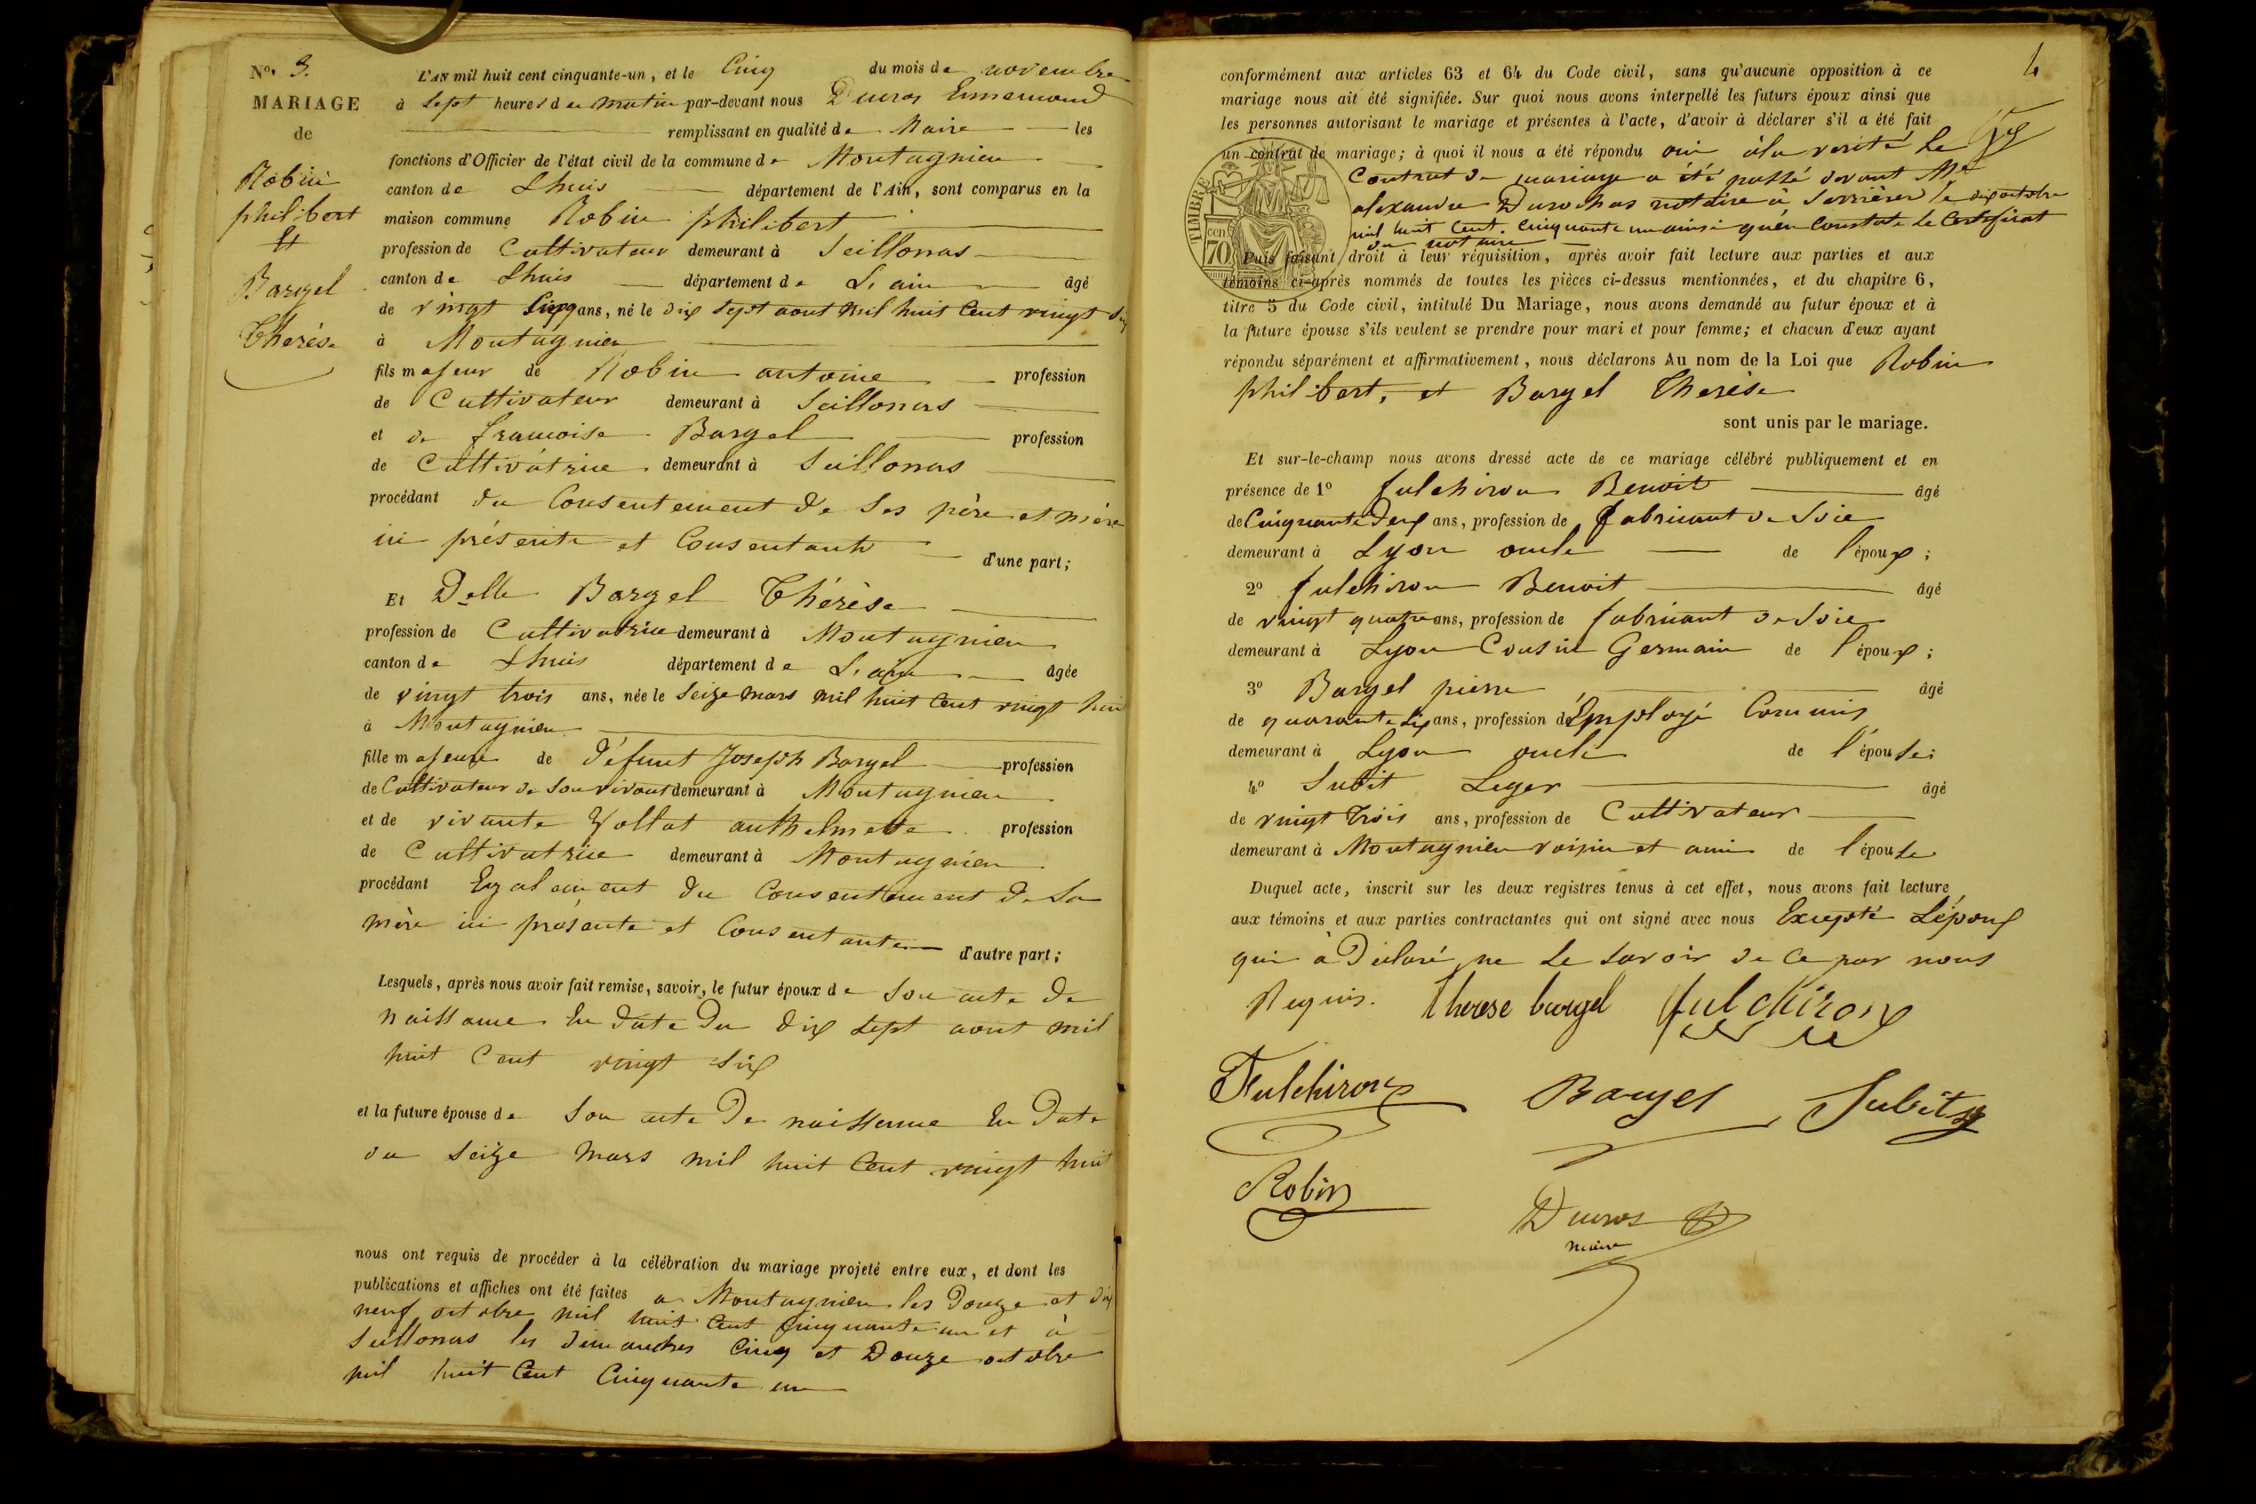 No. 3.
MARIAGE
de
Robin
philibert
Et
Bargel
Thérèse
L'AN mil huit cent cinquante-un, et le Cinq du mois de novembre
à Sept heures du matin par-devant nous Ducros Ennemond
remplissant en qualité de Maire les
fonctions d'Officier de l'état civil de la commune de Montagnieu
canton de Lhuis département de l'Ain, sont comparus en la
maison commune Robin philibert
profession de Cultivateur demeurant à Seillonas
canton de Lhuis département de L'ain âgé
de vingt Cinq ans, né le dix Sept aout mil huit Cent vingt Six
à Montagnieu
fils majeur de Robin antoine profession
de Cultivateur demeurant à Seillonas
et de francoise Bargel profession
de Cultivatrice demeurant à Seillonas
procédant du Consentement de Ses père et mère
ici présents et Consentants d'une part;
Et Delle Bargel Thérèse
profession de Cultivatrice demeurant à Montagnieu
canton de Lhuis département de L'ain âgée
de vingt trois ans, née le Seize mars mil huit Cent vingt huit
à Montagnieu
fille majeure de défunt Joseph Bargel profession
de Cultivateur de Son vivant demeurant à Montagnieu
et de vivante anthelmette profession
de Cultivatrice demeurant à Montagnieu
procédant Egalement du Consentement de Sa
mère ici présente et Consentante d'autre part;
Lesquels, après nous avoir fait remise, savoir, le futur époux de Son acte de
naissance En date du dix Sept aout mil
huit Cent vingt Six
et la future épouse de Son acte de naissance En date
du Seize mars mil huit Cent vingt huit
nous ont requis de procéder à la célébration du mariage projeté entre eux, et dont les
publications et affiches ont été faites a Montagnieu les Douze et dix
neuf octobre mil huit Cent Cinquante un et à
Seillonas les dimanches Cinq et Douze octobre
mil huit Cent Cinquante un
4
conformément aux articles 63 et 64 du Code civil, sans qu'aucune opposition à ce
mariage nous ait été signifiée. Sur quoi nous avons interpellé les futurs époux ainsi que
les personnes autorisant le mariage et présentes à l'acte, d'avoir à déclarer s'il a été fait
un contrat de mariage; à quoi il nous a été répondu oui à la verité le
Contrat de mariage a été passé devant Me
alexandre notaire à Serrières le dix octobre
mil huit Cent Cinquante un ainsi qu'en Constate le Certificat
du notaire
TIMBRE
cen
70
Puis faisant droit à leur réquisition, après avoir fait lecture aux parties et aux
témoins ci-après nommés de toutes les pièces ci-dessus mentionnées, et du chapitre 6,
titre 5 du Code civil, intitulé Du Mariage, nous avons demandé au futur époux et à
la future épouse s'ils veulent se prendre pour mari et pour femme; et chacun d'eux ayant
répondu séparément et affirmativement, nous déclarons Au nom de la Loi que Robin
philibert, et Bargel Therèse
sont unis par le mariage.
Et sur-le-champ nous avons dressé acte de ce mariage célébré publiquement et en
présence de 1º fulchiron Benoit âgé
de Cinquante Deux ans, profession de fabricant de Soie
demeurant à Lyon oncle de l'époux;
2º fulchiron Benoit âgé
de vingt quatre ans, profession de fabricant de Soie
demeurant à Lyon Cousin Germain de l'époux;
3º Bargel pierre âgé
de quarante Six ans, profession d'Employé Commis
demeurant à Lyon oncle de l'épouse;
4º Subit Leger âgé
de vingt Trois ans, profession de Cultivateur
demeurant à Montagnieu voisin et ami de l'épouse
Duquel acte, inscrit sur les deux registres tenus à cet effet, nous avons fait lecture
aux témoins et aux parties contractantes qui ont signé avec nous Excepté L'époux
qui à Déclaré ne le Savoir de Ce par nous
Requis. therese bargel fulchiron
Fulchiron Bargel Subit
Robin Ducros
maire